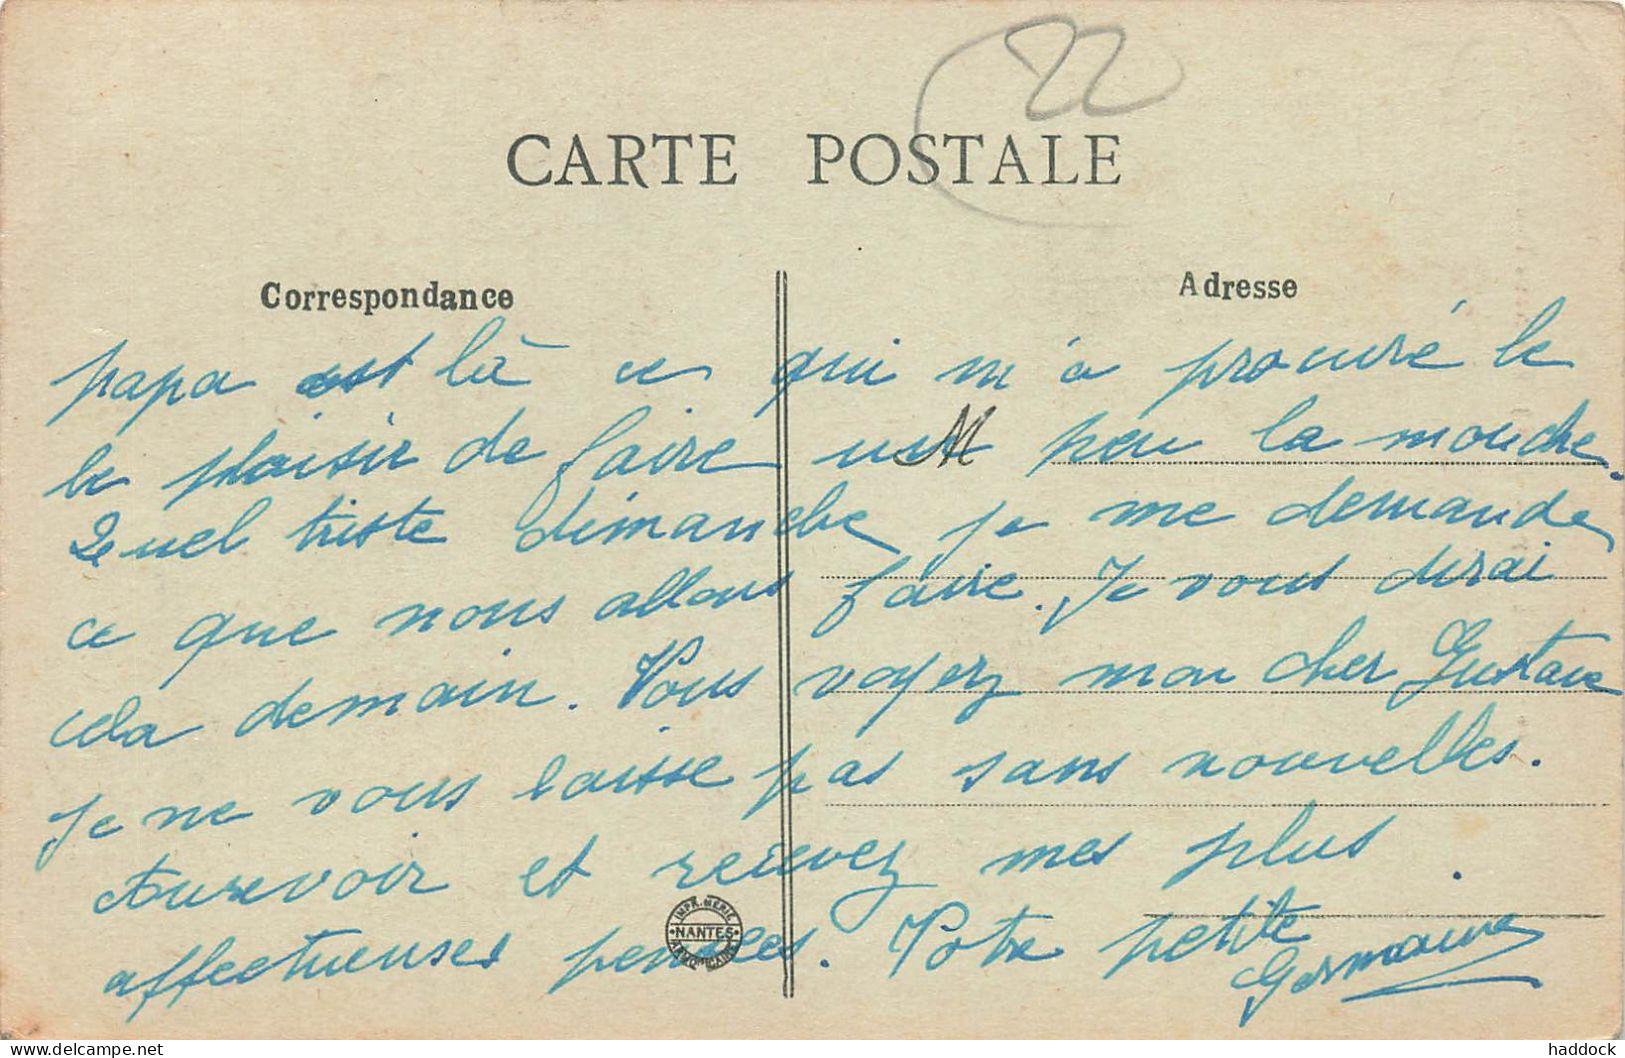 22
CARTE POSTALE
Correspondance
Adresse
papa est là ce qui m'a procuré le
le plaisir de faire un peu la mouche.
M
Quel triste dimanche je me demande
ce que nous allons faire. Je vous dirai
cela demain. Vous voyez mon cher Gustave
je ne vous laisse pas sans nouvelles.
Aurevoir et recevez mes plus
affectueuses pensées. Votre petite
Germaine
IMPRIMERIE
NANTES
ARMORICAINE
delcampe.net
haddock